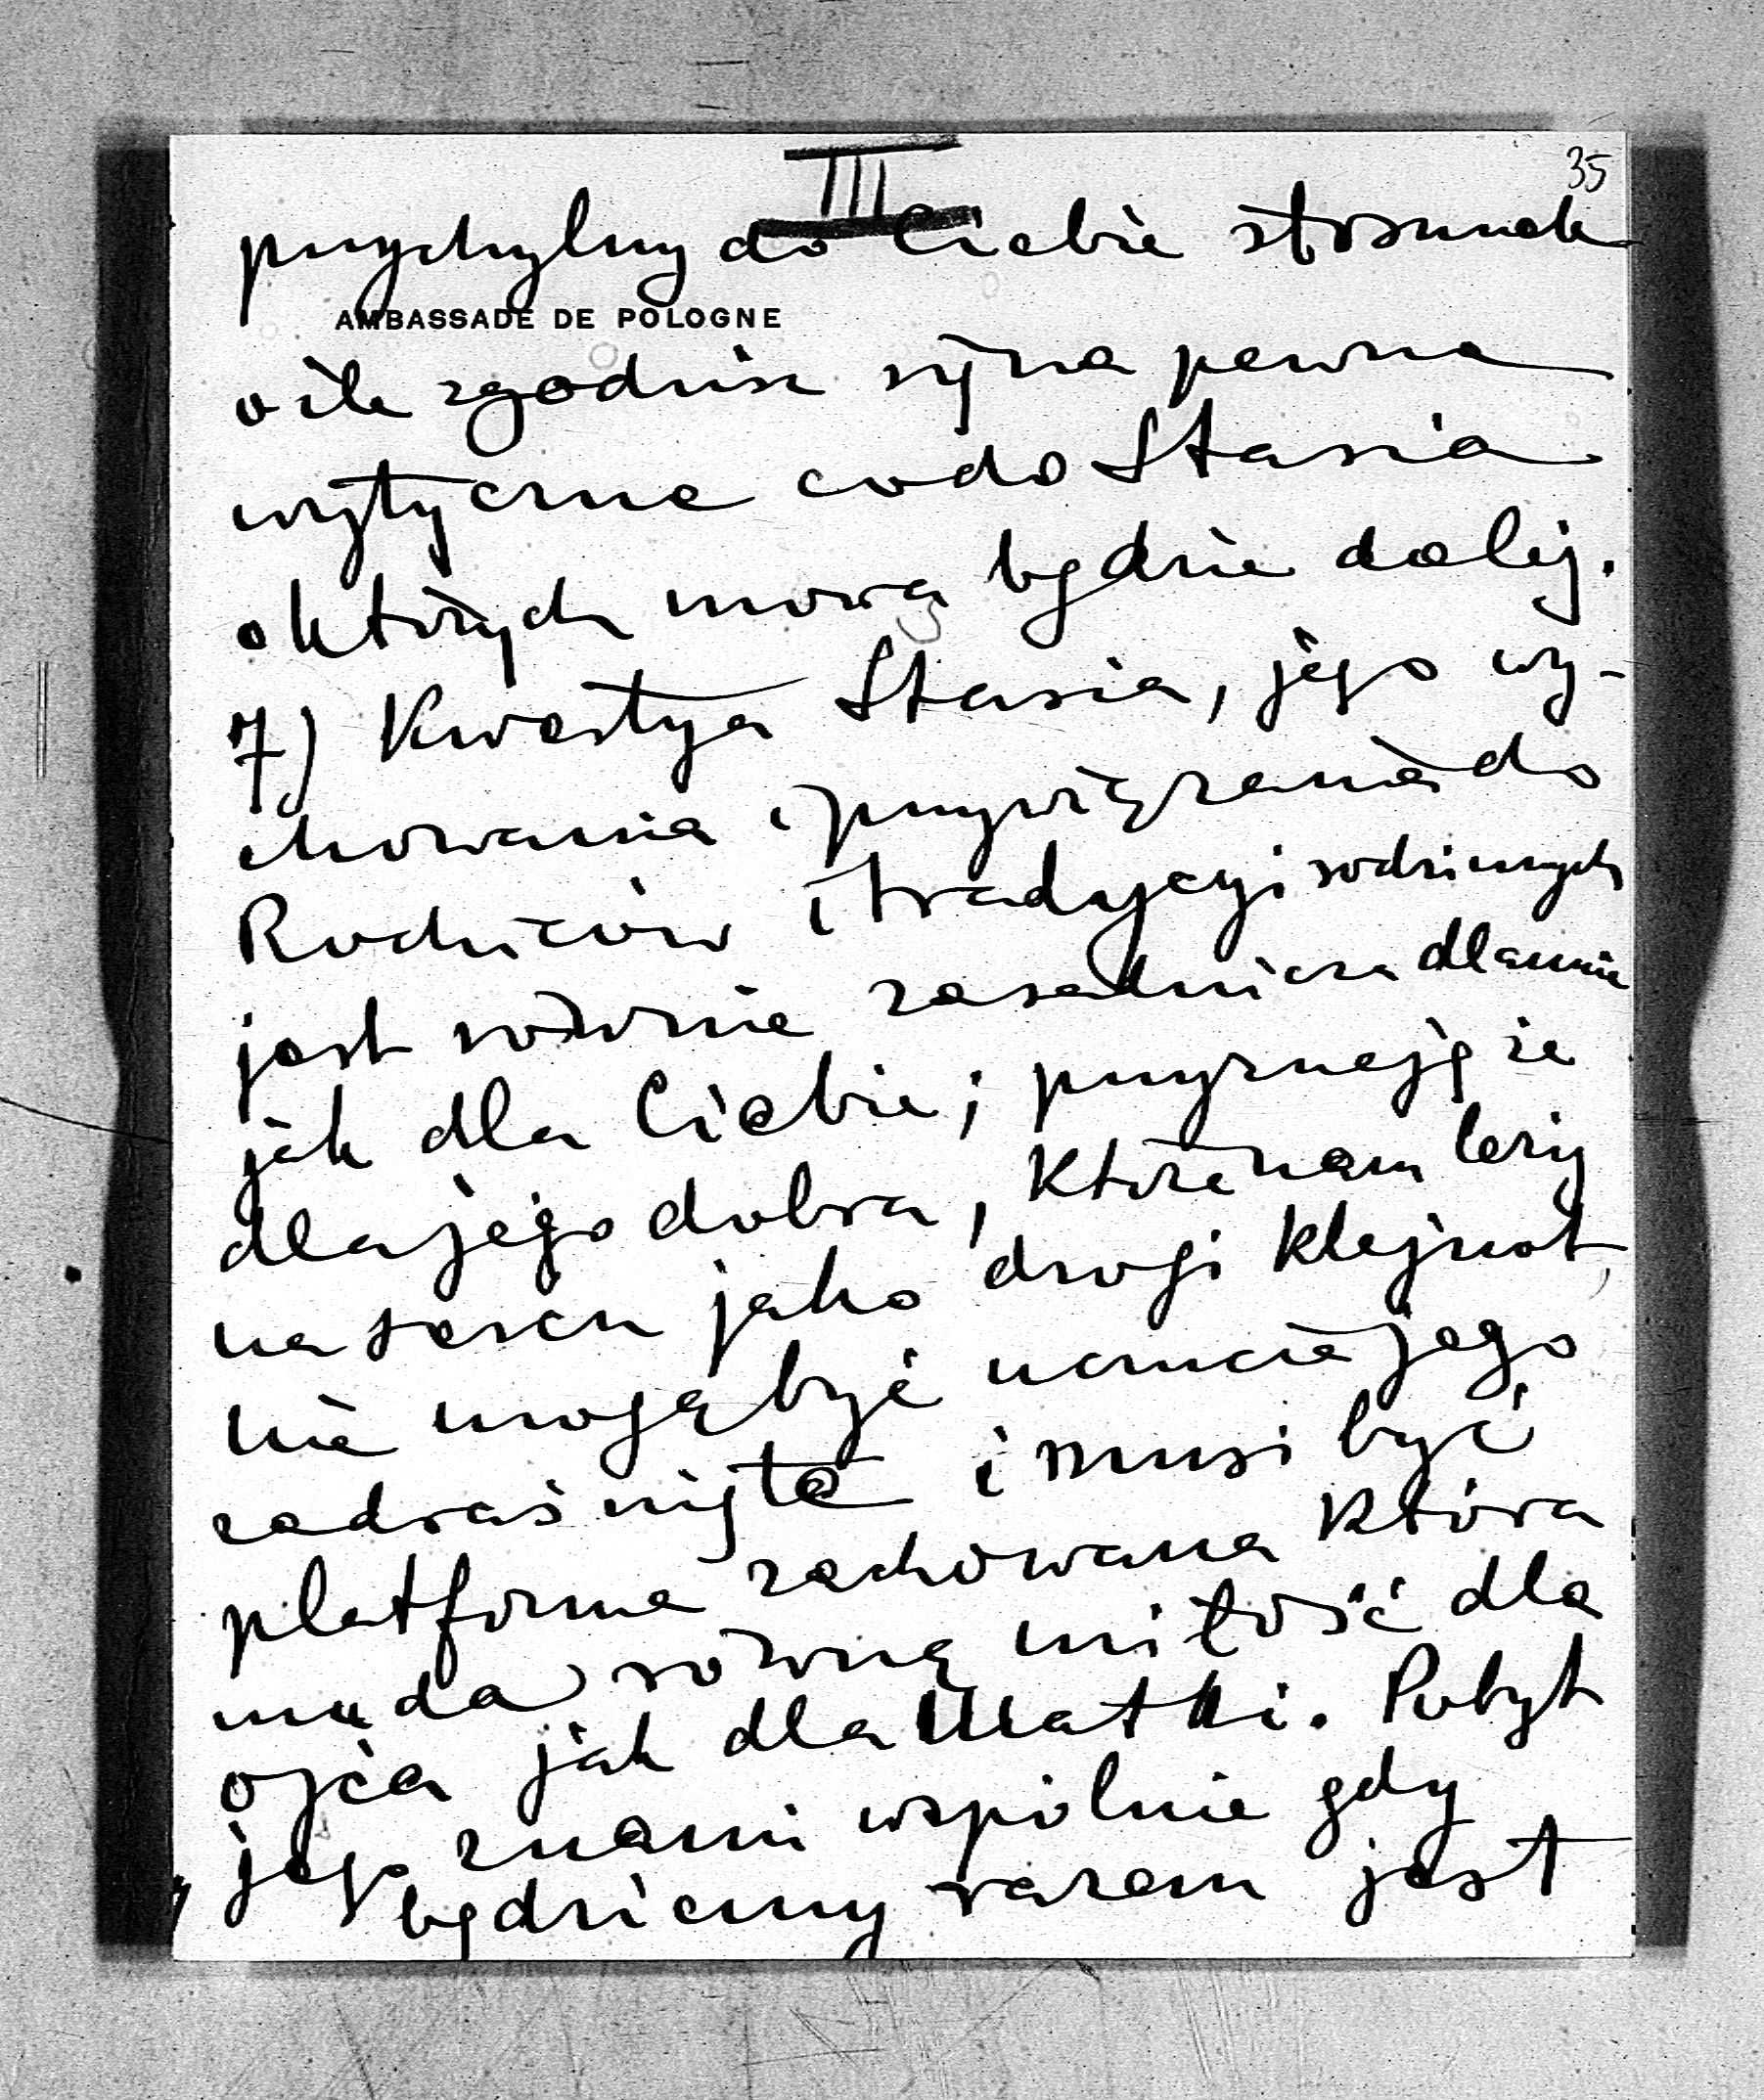 III
35
przychylny do Ciebie stosunek
AMBASSADE DE POLOGNE
o ile zgodzisz się na pewne
wytyczne co do Stasia
o których mowa będzie dalej.
7) Kwestya Stasia, jego wy-
chowania i przywiązania do
Rodziców i tradycyi rodzinnych
jest równie zasadnicza dla mnie
jak dla Ciebie; przyznaję że
dla jego dobra, które nam leży
na sercu jako drogi klejnot,
nie mogą być uczucia jego
zadraśnięte i musi być
platforma zachowana która
mu da równą miłość dla
ojca jak dla Matki. Pobyt
jego z nami wspólnie gdy
będziemy razem jest